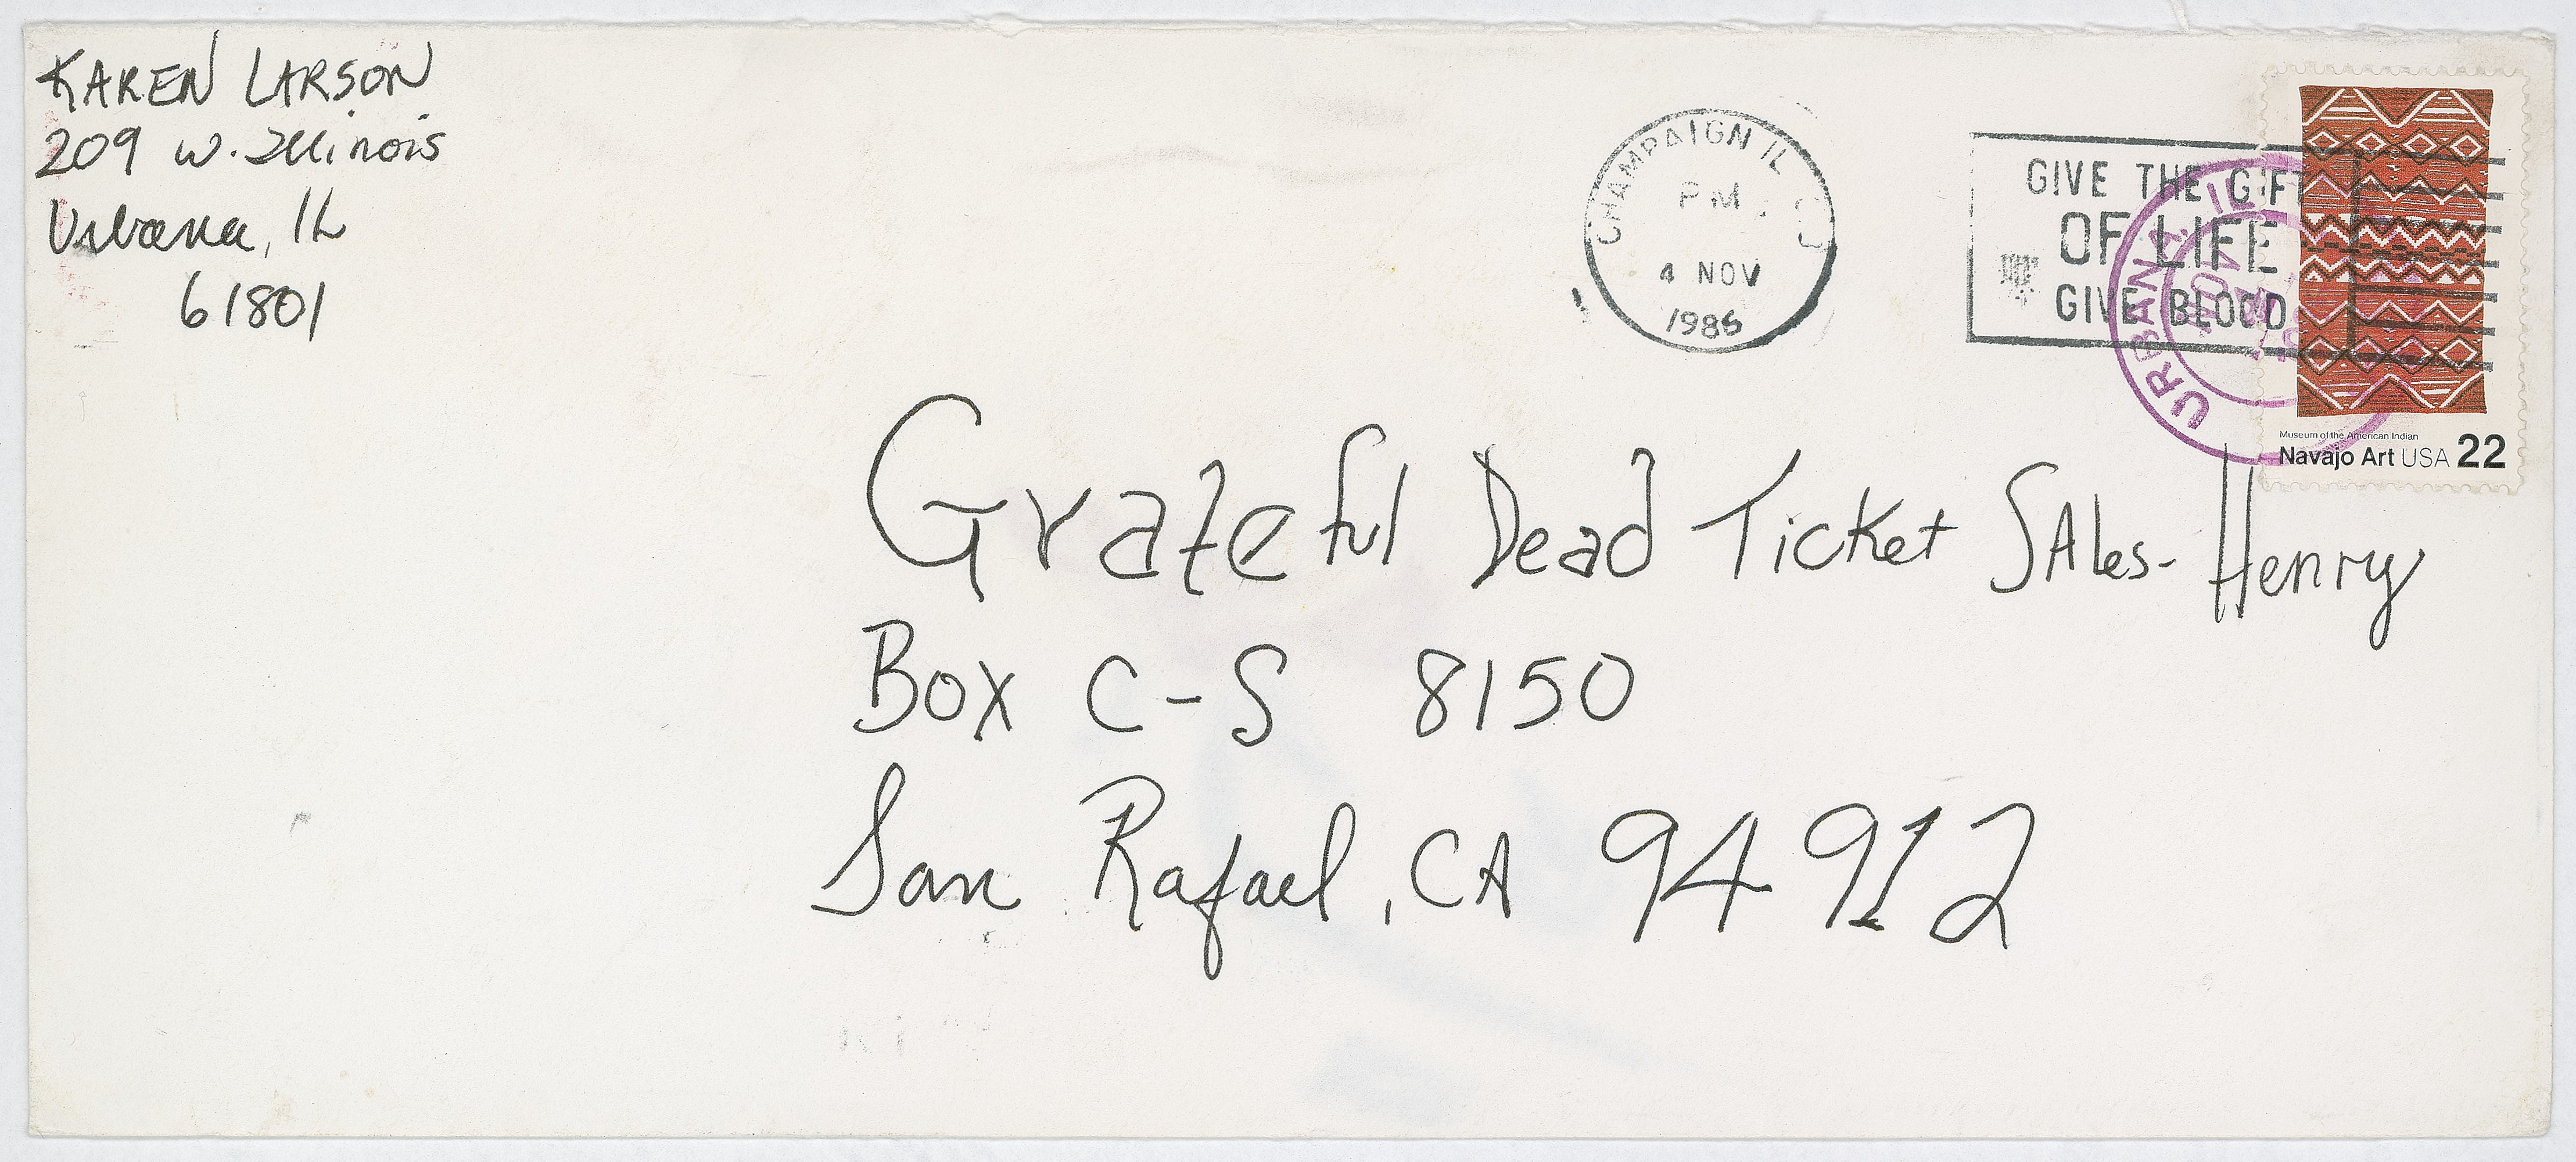 KAREN LARSON
209 W. Illinois
Urbana, IL
61801
CHAMPAIGN IL
PM
4 NOV
1986
GIVE THE GIFT
OF LIFE
GIVE BLOOD
URBANA, IL
NOV 4
Museum of the American Indian
Navajo Art USA 22
Grateful Dead Ticket SAles- Henry
Box C-S 8150
San Rafael, CA 94912